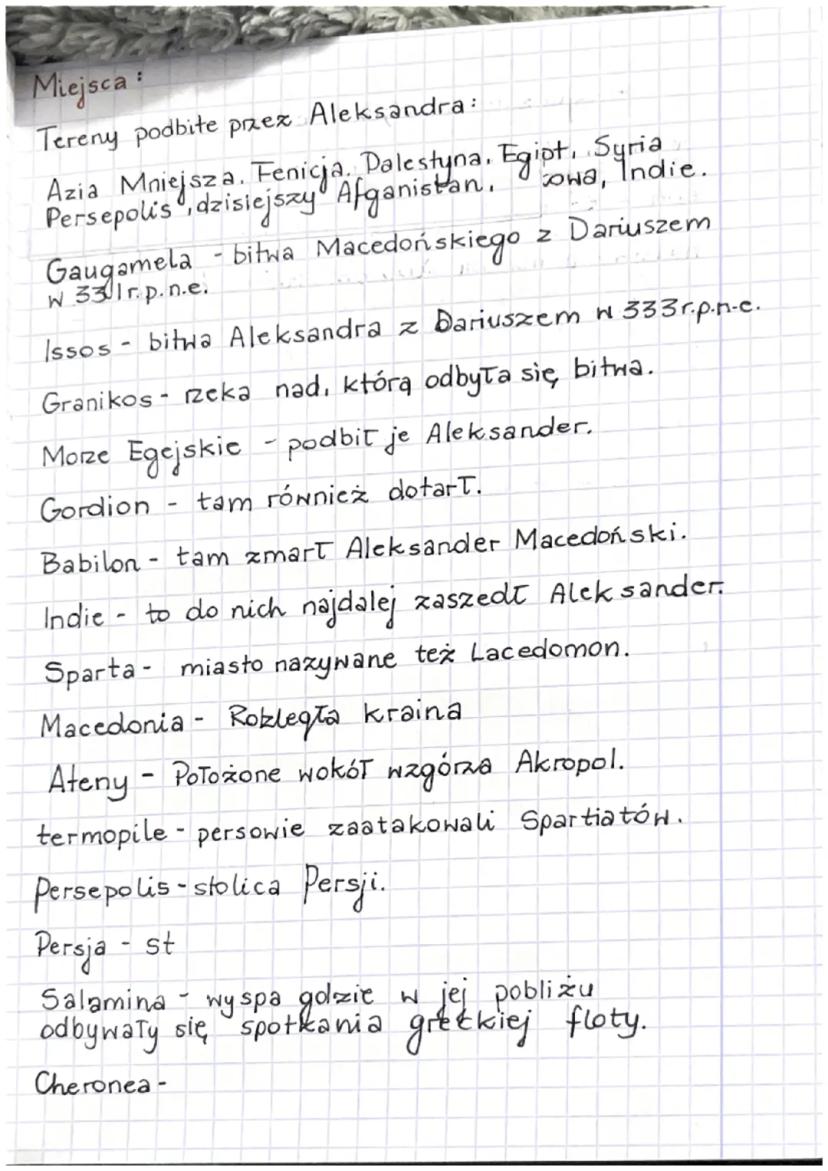 Miejsca:
Tereny podbite przez Aleksandra:
Azia Mniejsza. Fenicja. Palestyna. Egipt, Syria
Persepolis, dzisiejszy Afganistan, Indie.
Gaugamela - bitwa Macedońskiego z Dariuszem
w 331r.p.n.e.
Issos - bitwa Aleksandra z Dariuszem w 333r.p.n.e.
Granikos - rzeka nad, którą odbyła się bitwa.
Morze Egejskie - podbił je Aleksander.
Gordion - tam również dotarł.
Babilon - tam zmarł Aleksander Macedoński.
Indie - to do nich najdalej zaszedł Aleksander.
Sparta - miasto nazywane też Lacedomon.
Macedonia - Rozległa kraina
Ateny - Położone wokół wzgórza Akropol.
termopile - persowie zaatakowali Spartiatów.
Persepolis - stolica Persji.
Persja - st
Salamina - wyspa gdzie w jej pobliżu
odbywały się spotkania greckiej floty.
Cheronea -